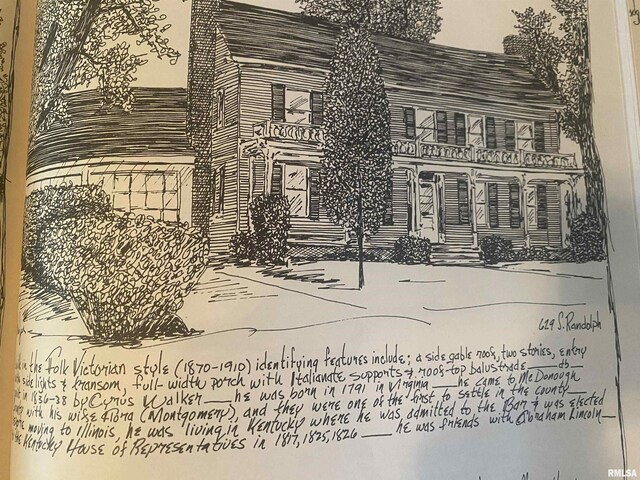 629 S. Randolph
in the Folk Victorian style (1870-1910) identifying features include; a side gable roof, two stories, entry
side lights & transom, full width porch with Italianate supports & roof-top balustrade
in 1836-38 by Cyrus Walker — he was born in 1791 in Virginia — he came to McDonough
with his wife Flora (Montgomery), and they were one of the first to settle in the county
moving to Illinois, he was living in Kentucky where he was admitted to the Bar & was elected
Kentucky House of Representatives in 1817, 1825, 1826 — he was friends with Abraham Lincoln —
RMLSA